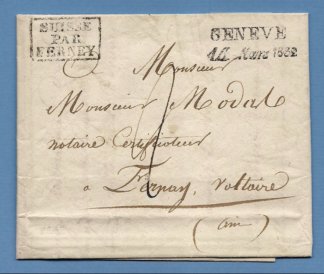 SUISSE
PAR
FERNEY
GENEVE
Mars 1832
Monsieur
Monsieur Modal
notaire Certificateur
a Fernay, Voltaire
(ain)